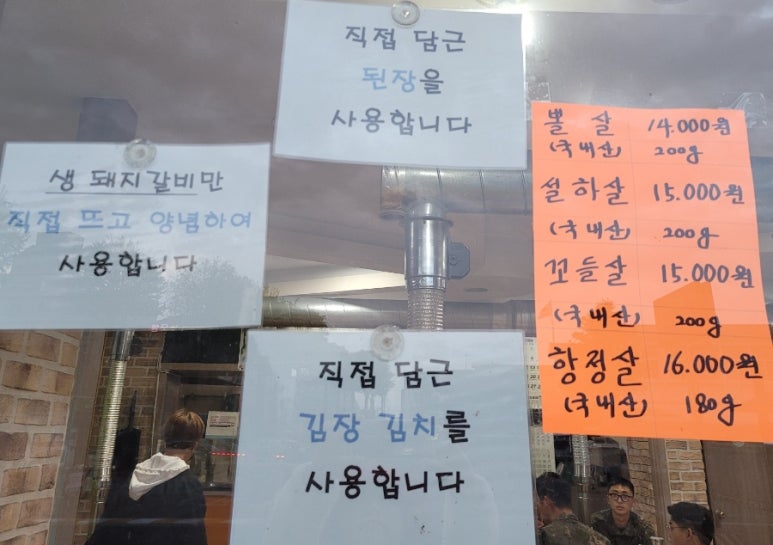 직접 담근
된장을
사용합니다
생 돼지갈비만
직접 뜨고 양념하여
사용합니다
직접 담근
김장 김치를
사용합니다
뽈살 14.000원
(국내산) 200g
설하살 15.000원
(국내산) 200g
꼬들살 15.000원
(국내산) 200g
항정살 16.000원
(국내산) 180g